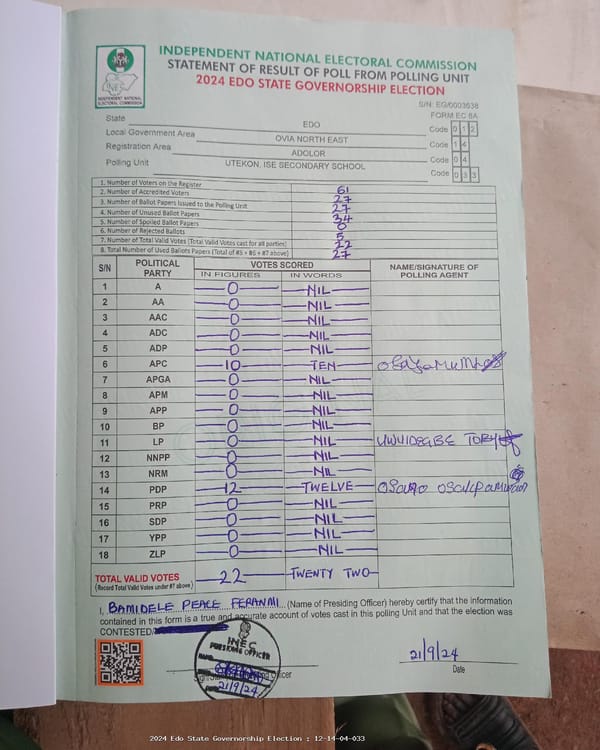 INDEPENDENT NATIONAL ELECTORAL COMMISSION
STATEMENT OF RESULT OF POLL FROM POLLING UNIT
2024 EDO STATE GOVERNORSHIP ELECTION
INDEPENDENT NATIONAL ELECTORAL COMMISSION
S/N: EG/0003638
FORM EC 8A
State EDO Code 0 1 2
Local Government Area OVIA NORTH EAST Code 1 4
Registration Area ADOLOR Code 0 4
Polling Unit UTEKON, ISE SECONDARY SCHOOL Code 0 3 3
1. Number of Voters on the Register 61
2. Number of Accredited Voters 27
3. Number of Ballot Papers Issued to the Polling Unit 27
4. Number of Unused Ballot Papers 34
5. Number of Spoiled Ballot Papers 0
6. Number of Rejected Ballots 5
7. Number of Total Valid Votes (Total Valid Votes cast for all parties) 22
8. Total Number of Used Ballots Papers (Total of #5 + #6 + #7 above) 27
S/N POLITICAL PARTY VOTES SCORED NAME/SIGNATURE OF POLLING AGENT
IN FIGURES IN WORDS
1 A 0 NIL
2 AA 0 NIL
3 AAC 0 NIL
4 ADC 0 NIL
5 ADP 0 NIL
6 APC 10 TEN
7 APGA 0 NIL
8 APM 0 NIL
9 APP 0 NIL
10 BP 0 NIL
11 LP 0 NIL
12 NNPP 0 NIL
13 NRM 0 NIL
14 PDP 12 TWELVE
15 PRP 0 NIL
16 SDP 0 NIL
17 YPP 0 NIL
18 ZLP 0 NIL
TOTAL VALID VOTES 22 TWENTY TWO
(Record Total Valid Votes under #7 above)
I, BAMIDELE PEACE FERANMI (Name of Presiding Officer) hereby certify that the information
contained in this form is a true and accurate account of votes cast in this polling Unit and that the election was
CONTESTED/
INEC
PRESIDING OFFICER
21/9/24
Officer
21/9/24
Date
2024 Edo State Governorship Election : 12-14-04-033